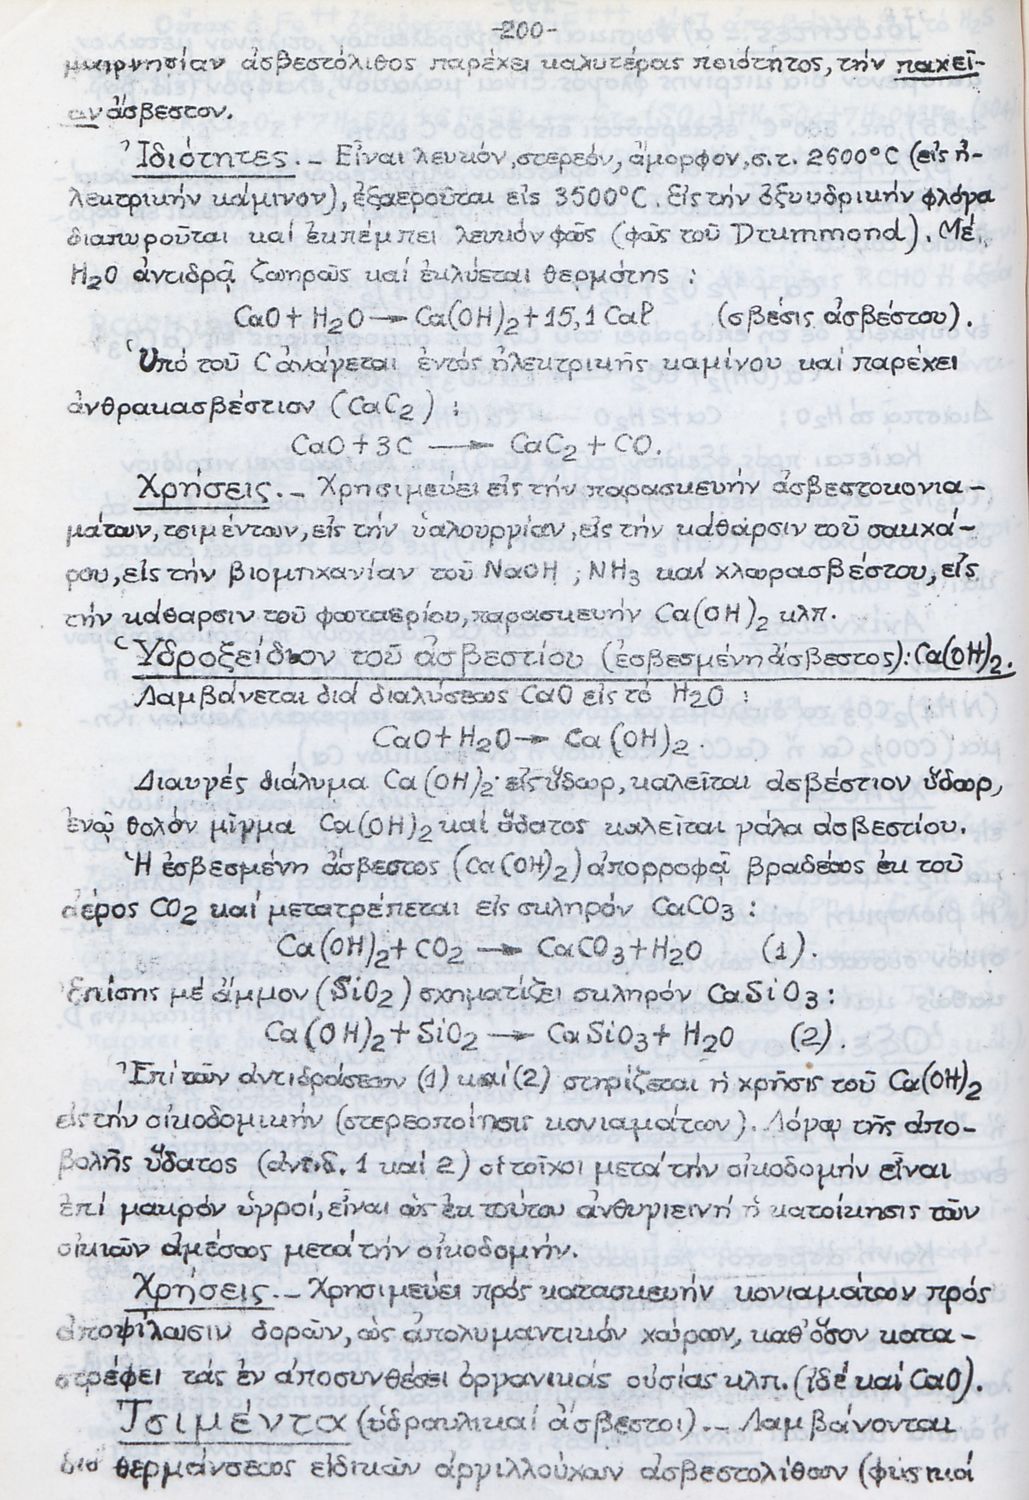 -200-
μαγνησίαν ἀσβεστόλιθος παρέχει καλυτέρας ποιότητος, τήν παχεῖ-
αν ἄσβεστον.
Ἰδιότητες.- Εἶναι λευκόν, στερεόν, ἄμορφον, σ.τ. 2600°C (εἰς ἠ-
λεκτρικήν κάμινον), ἐξαεροῦται εἰς 3500°C. Εἰς τήν ὀξυυδρικήν φλόγα
διαπυροῦται καί ἐκπέμπει λευκόν φῶς (φῶς τοῦ Drummond). Μέ
H₂O ἀντιδρᾷ ζωηρῶς καί ἐκλύεται θερμότης :
CaO + H₂O → Ca(OH)₂ + 15,1 Cal (σβέσις ἀσβέστου).
Ὑπό τοῦ C ἀνάγεται ἐντός ἠλεκτρικῆς καμίνου καί παρέχει
ἀνθρακασβέστιον (CaC₂) :
CaO + 3C → CaC₂ + CO.
Χρήσεις.- Χρησιμεύει εἰς τήν παρασκευήν ἀσβεστοκονια-
μάτων, τσιμέντων, εἰς τήν ὑαλουργίαν, εἰς τήν κάθαρσιν τοῦ σακχά-
ρου, εἰς τήν βιομηχανίαν τοῦ NaOH, NH₃ καί χλωρασβέστου, εἰς
τήν κάθαρσιν τοῦ φωταερίου, παρασκευήν Ca(OH)₂ κλπ.
Ὑδροξείδιον τοῦ ἀσβεστίου (ἐσβεσμένη ἄσβεστος): Ca(OH)₂.
Λαμβάνεται διά διαλύσεως CaO εἰς τό H₂O :
CaO + H₂O → Ca(OH)₂.
Διαυγές διάλυμα Ca(OH)₂ εἰς ὕδωρ, καλεῖται ἀσβέστιον ὕδωρ,
ἐνῷ θολόν μῖγμα Ca(OH)₂ καί ὕδατος καλεῖται γάλα ἀσβεστίου.
Ἡ ἐσβεσμένη ἄσβεστος (Ca(OH)₂) ἀπορροφᾷ βραδέως ἐκ τοῦ
ἀέρος CO₂ καί μετατρέπεται εἰς σκληρόν CaCO₃ :
Ca(OH)₂ + CO₂ → CaCO₃ + H₂O (1).
Ἐπίσης μέ ἄμμον (SiO₂) σχηματίζει σκληρόν CaSiO₃ :
Ca(OH)₂ + SiO₂ → CaSiO₃ + H₂O (2).
Ἐπί τῶν ἀντιδράσεων (1) καί (2) στηρίζεται ἡ χρῆσις τοῦ Ca(OH)₂
εἰς τήν οἰκοδομικήν (στερεοποίησις κονιαμάτων). Λόγῳ τῆς ἀπο-
βολῆς ὕδατος (ἀντιδ. 1 καί 2) οἱ τοῖχοι μετά τήν οἰκοδομήν εἶναι
ἐπί μακρόν ὑγροί, εἶναι ὡς ἐκ τούτου ἀνθυγιεινή ἡ κατοίκησις τῶν
οἰκιῶν ἀμέσως μετά τήν οἰκοδομήν.
Χρήσεις.- Χρησιμεύει πρός κατασκευήν κονιαμάτων πρός
ἀποψίλωσιν δορῶν, ὡς ἀπολυμαντικόν χώρων, καθ' ὅσον κατα-
στρέφει τάς ἐν ἀποσυνθέσει ὀργανικάς οὐσίας κλπ. (ἰδέ καί CaO).
Τσιμέντα (ὑδραυλικαί ἄσβεστοι).- Λαμβάνονται
διά θερμάνσεως εἰδικῶν ἀργιλλούχων ἀσβεστολίθων (φυσικοί